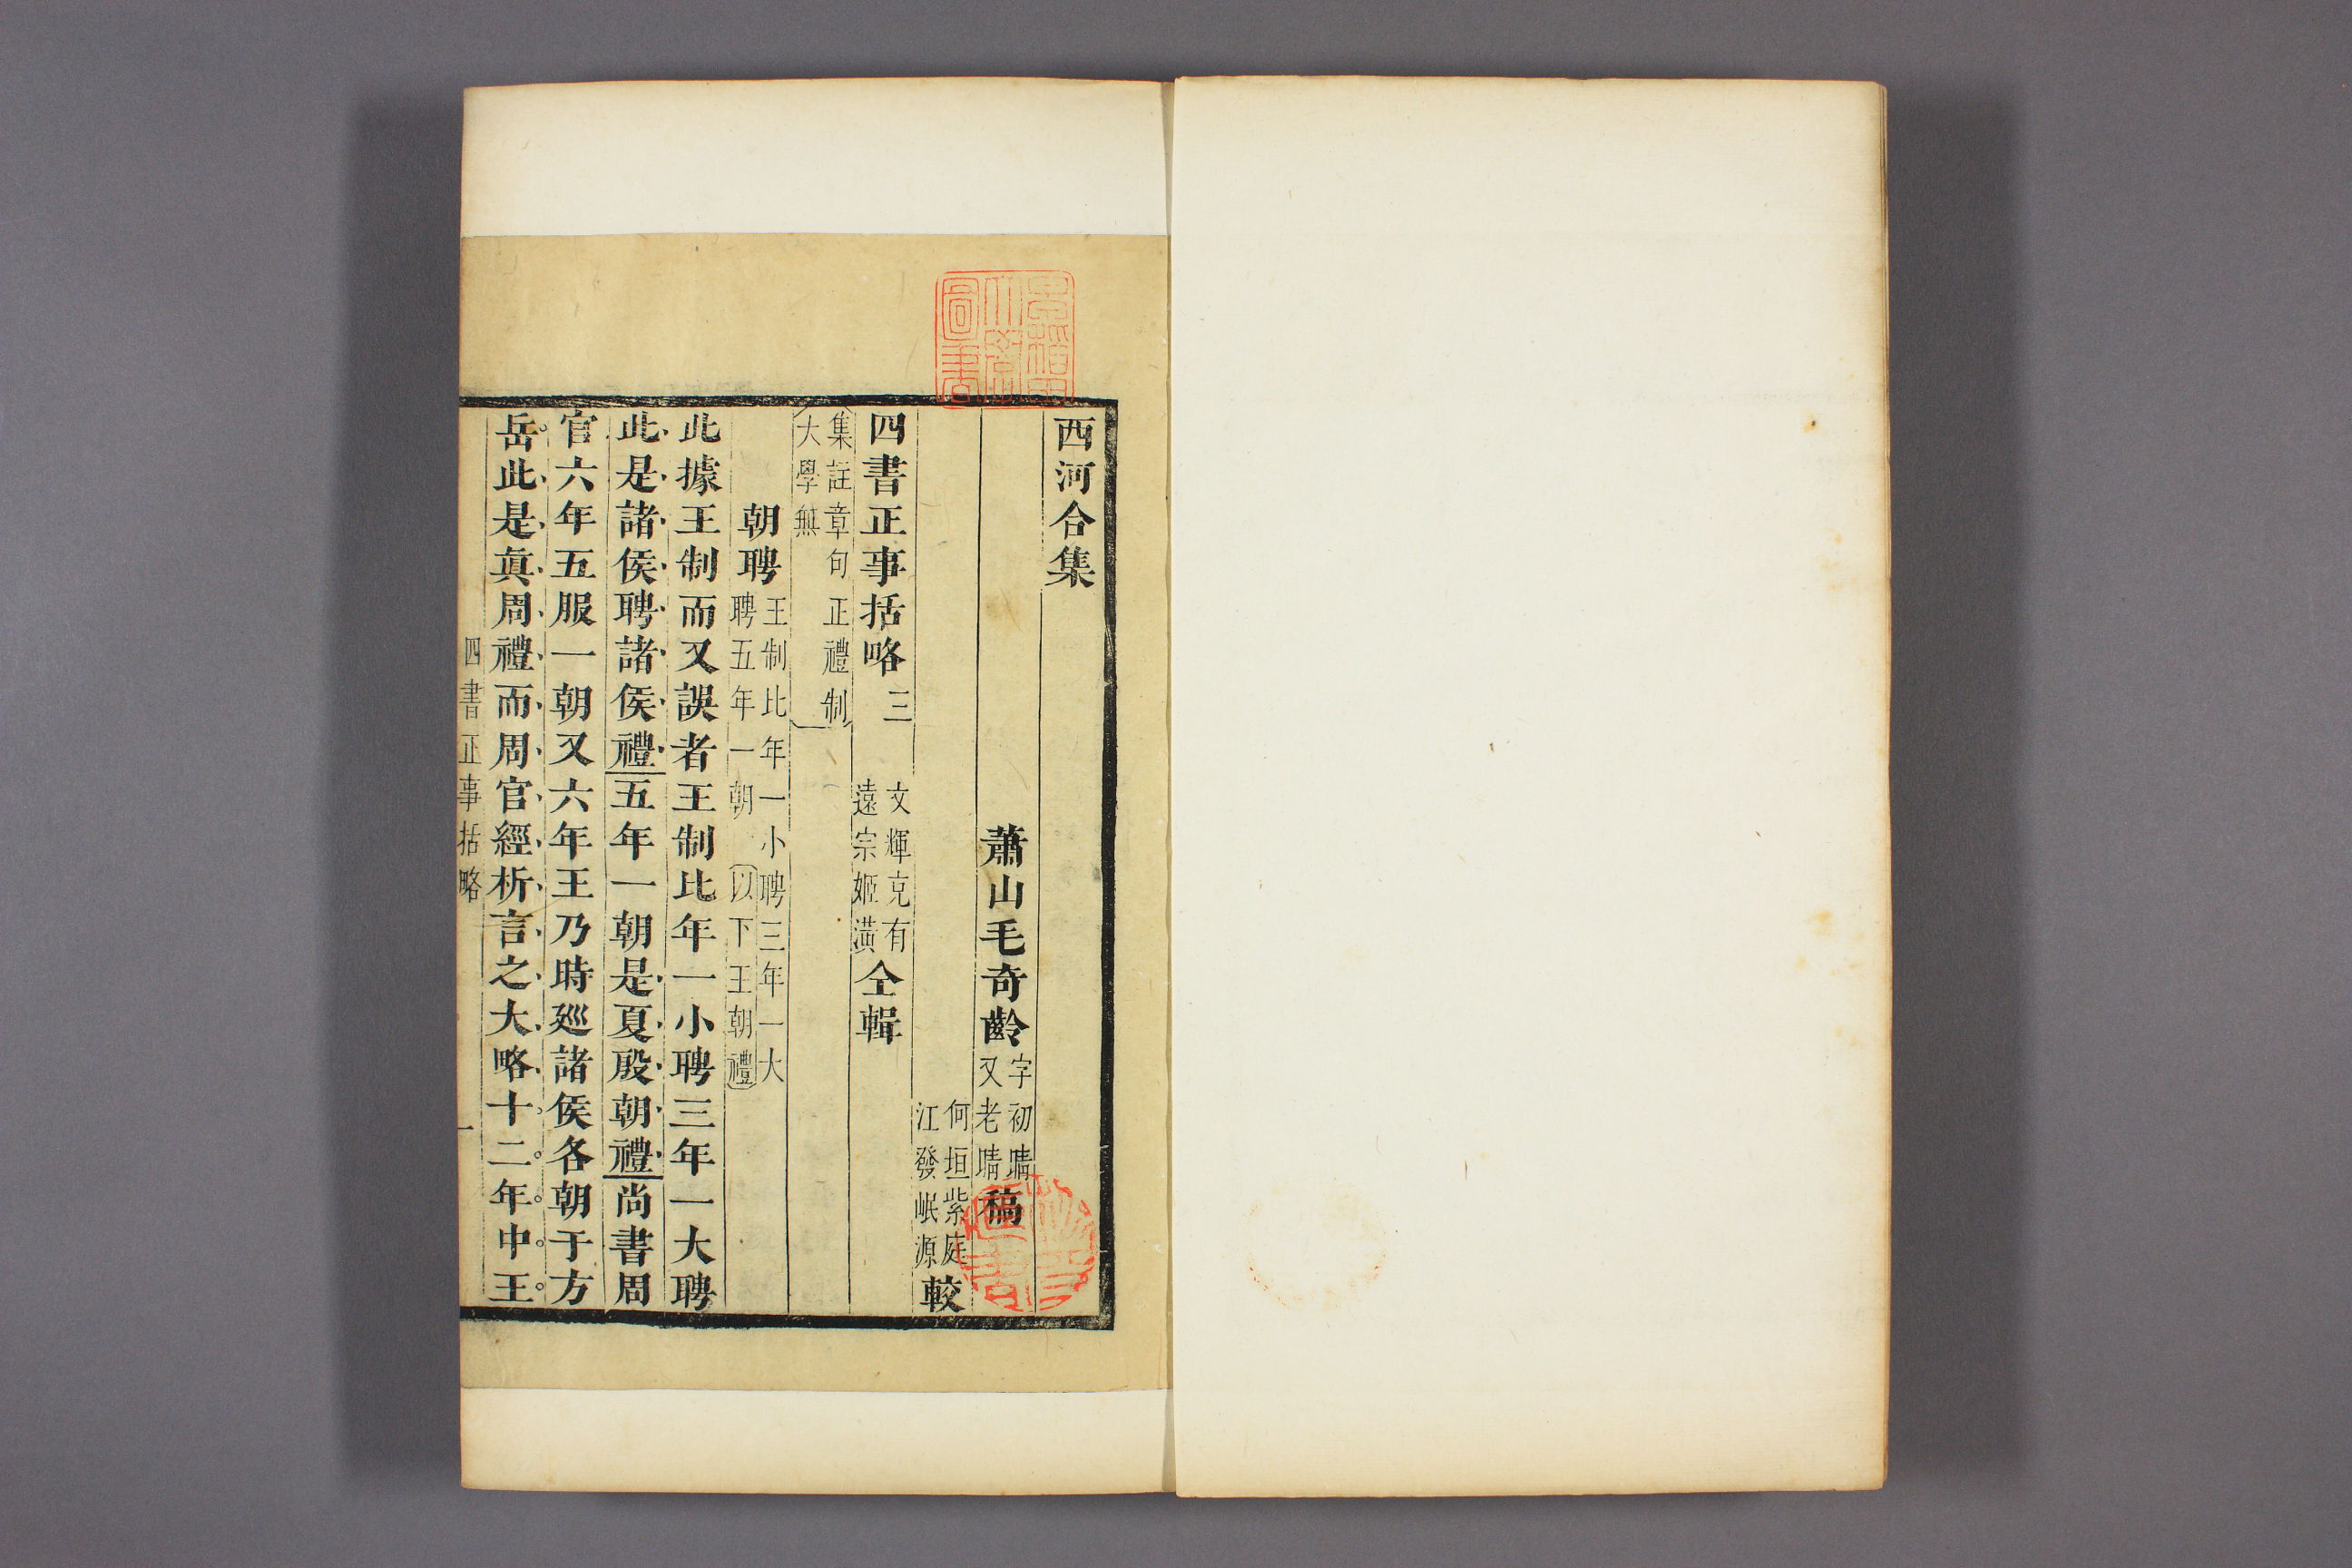 西河合集
蕭山毛奇齡字初晴又老晴稿
何垣紫庭江發岷源較
四書正事括略三 文輝克有遠宗姬潢仝輯
集註章句正禮制大學無
朝聘王制比年一小聘三年一大聘五年一朝以下王朝禮
此據王制而又誤者王制比年一小聘三年一大聘
此是諸侯聘諸侯禮五年一朝是夏殷朝禮尚書周
官六年五服一朝又六年王乃時廵諸侯各朝于方
岳此是眞周禮而周官經析言之大略十二年中王
四書正事括略 一
早稻田大學圖書